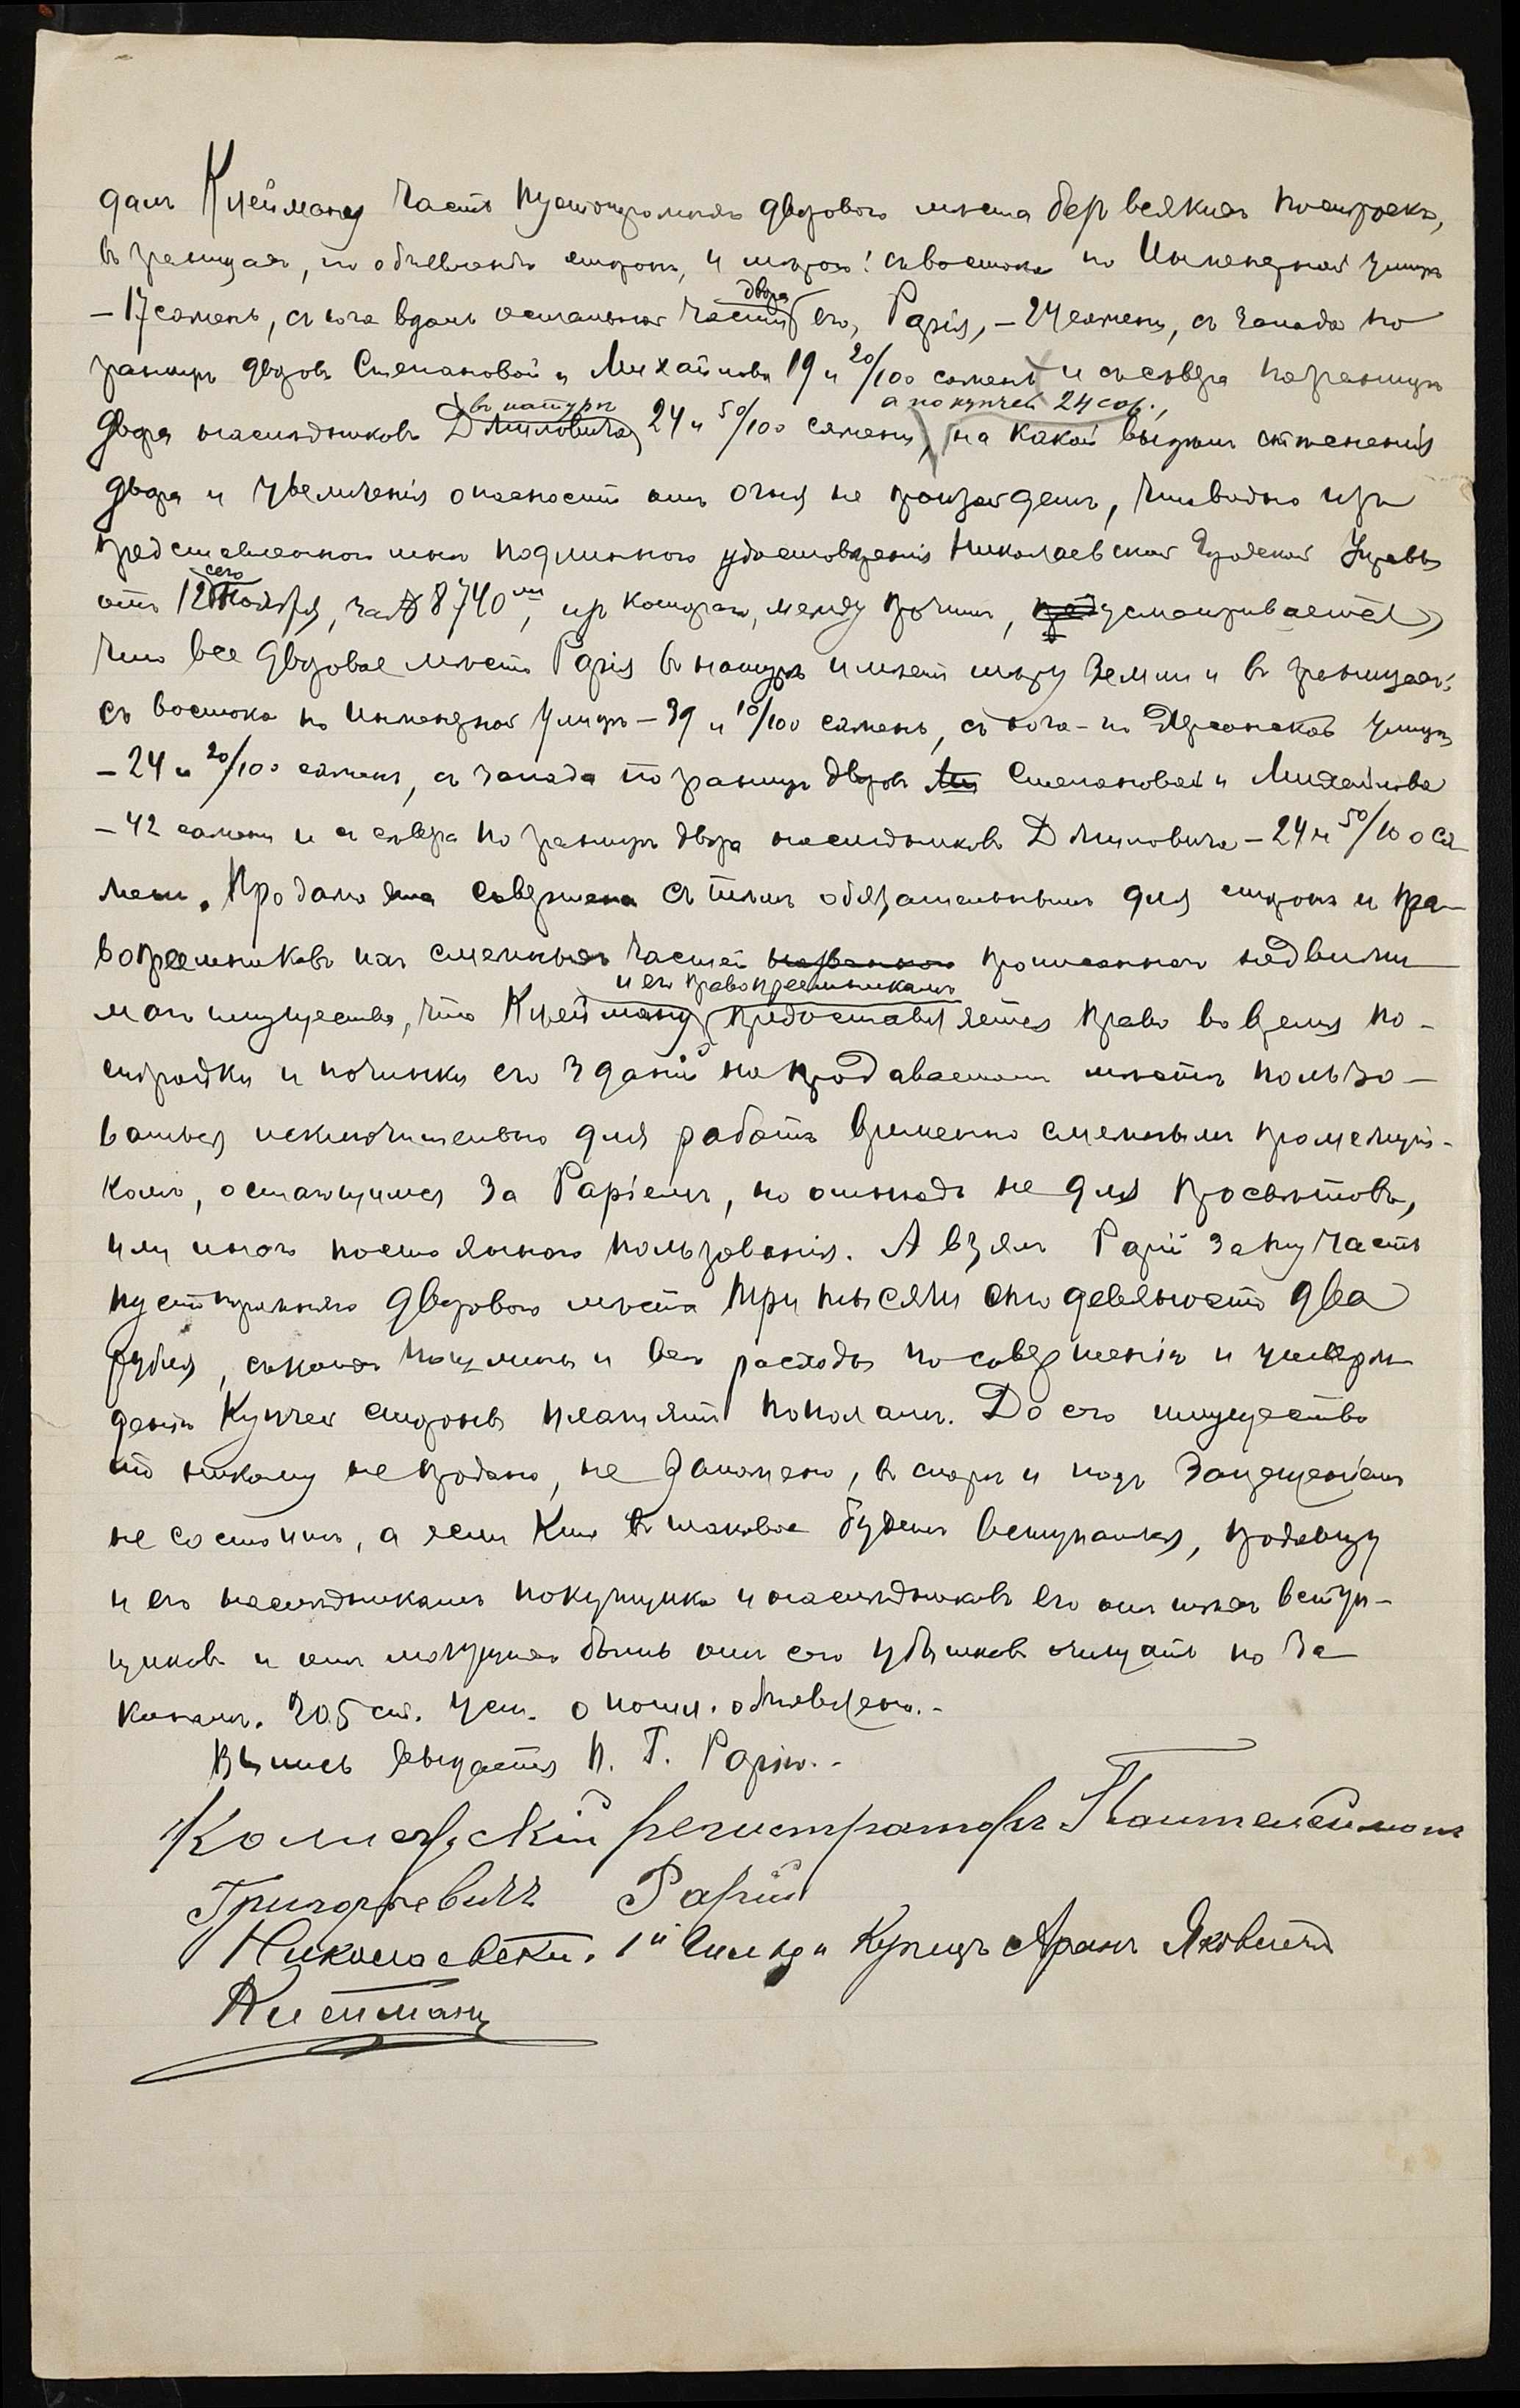 далъ Клейману часть пустопорожняго дворового мѣста безъ всякихъ построекъ,
въ границахъ, по объявленію сторонъ, и мѣрою: съ востока по Инженерной улицѣ
– 17 сажень, съ юга вдоль остальной части двора его, Рарія, – 24 сажени, съ запада по
границѣ дворовъ Степановой и Михайлова 19 и 20/100 сажень и съ сѣвера по границѣ
въ натурѣ а по купчей 24 саж.,
двора наслѣдниковъ Дмиловича, 24 и 50/100 сажени, на какой выдѣлъ стѣсненія
двора и увеличенія опасности отъ огня не произойдетъ, что видно изъ
представленнаго мнѣ подлиннаго удостовѣренія Николаевской Городской Управы
отъ 12 сего Ноября, за № 8740мъ, изъ котораго, между прочимъ, усматривается,
что все дворовое мѣсто Рарія въ натурѣ имѣетъ мѣру земли и въ границахъ:
съ востока по Инженерной улицѣ – 39 и 10/100 сажень, съ юга – по Херсонской улицѣ
– 24 и 20/100 сажени, съ запада по границѣ дворовъ Степановой и Михайлова
– 42 сажени и съ сѣвера по границѣ двора наслѣдниковъ Дмиловича – 24 и 50/100 са
жени. Продажа эта совершена съ тѣмъ обязательнымъ для сторонъ и пра–
вопреемниковъ ихъ смежныхъ частей прописаннаго недвижи
и его правопреемникамъ
маго имущества, что Клейману предоставляется право во время по–
стройки и починки его зданій на продаваемомъ мѣстѣ пользо–
ваться исключительно для работъ временно смежнымъ промежут–
комъ, остающимся за Раріемъ, но отнюдь не для просвѣтовъ,
или иного постояннаго пользованія. А взялъ Рарій за ту часть
пустопорожняго дворового мѣста три тысячи сто девяносто два
рубля, съ коихъ пошлины и всѣ расходы по совершенію и утверж
денію купчей стороны платятъ пополамъ. До сего имущество
то никому не продано, не заложено, въ спорѣ и подъ запрещеніемъ
не состоитъ, а если кто въ таковое будетъ вступаться, продавцу
и его наслѣдникамъ покупщика и наслѣдниковъ его отъ тѣхъ вступ–
щиковъ и отъ могущихъ быть отъ сего убытковъ очищать по за
конамъ. 205 ст. Уст. о пошл. объявлено.–
Выпись выдается П. Г. Рарію.–
Коллежскій регистраторъ Пантелеймонъ
Григорьевичъ Рарій
Николаевскій 1й Гильдіи Купецъ Аронъ Яковлевъ
Клейманъ